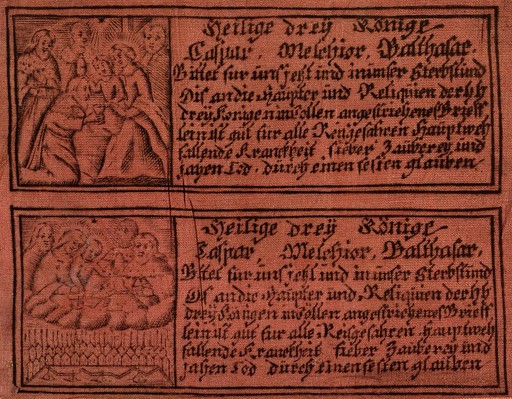 Heilige drey Könige
Caspar, Melchior, Balthasar,
Bittet fur uns jetzt und in unser Sterbstund
Dis an die Häupter und Reliquien der hh
drey Königen in Collen angestrichenes Brieff
lein ist gut fur alle Reisgefahren Hauptweh
fallende Kranckheit fieber Zauberey und
jahen Tod durch einen festen glauben
Heilige drey Könige
Caspar, Melchior, Balthasar,
Bittet fur uns jetzt und in unser Sterbstund
Dis an die Häupter und Reliquien der hh
drey Königen in Collen angestrichenes Brieff
lein ist gut fur alle Reisgefahren hauptweh
fallende Kranckheit fieber Zauberey und
jahen Tod durch einen festen glauben